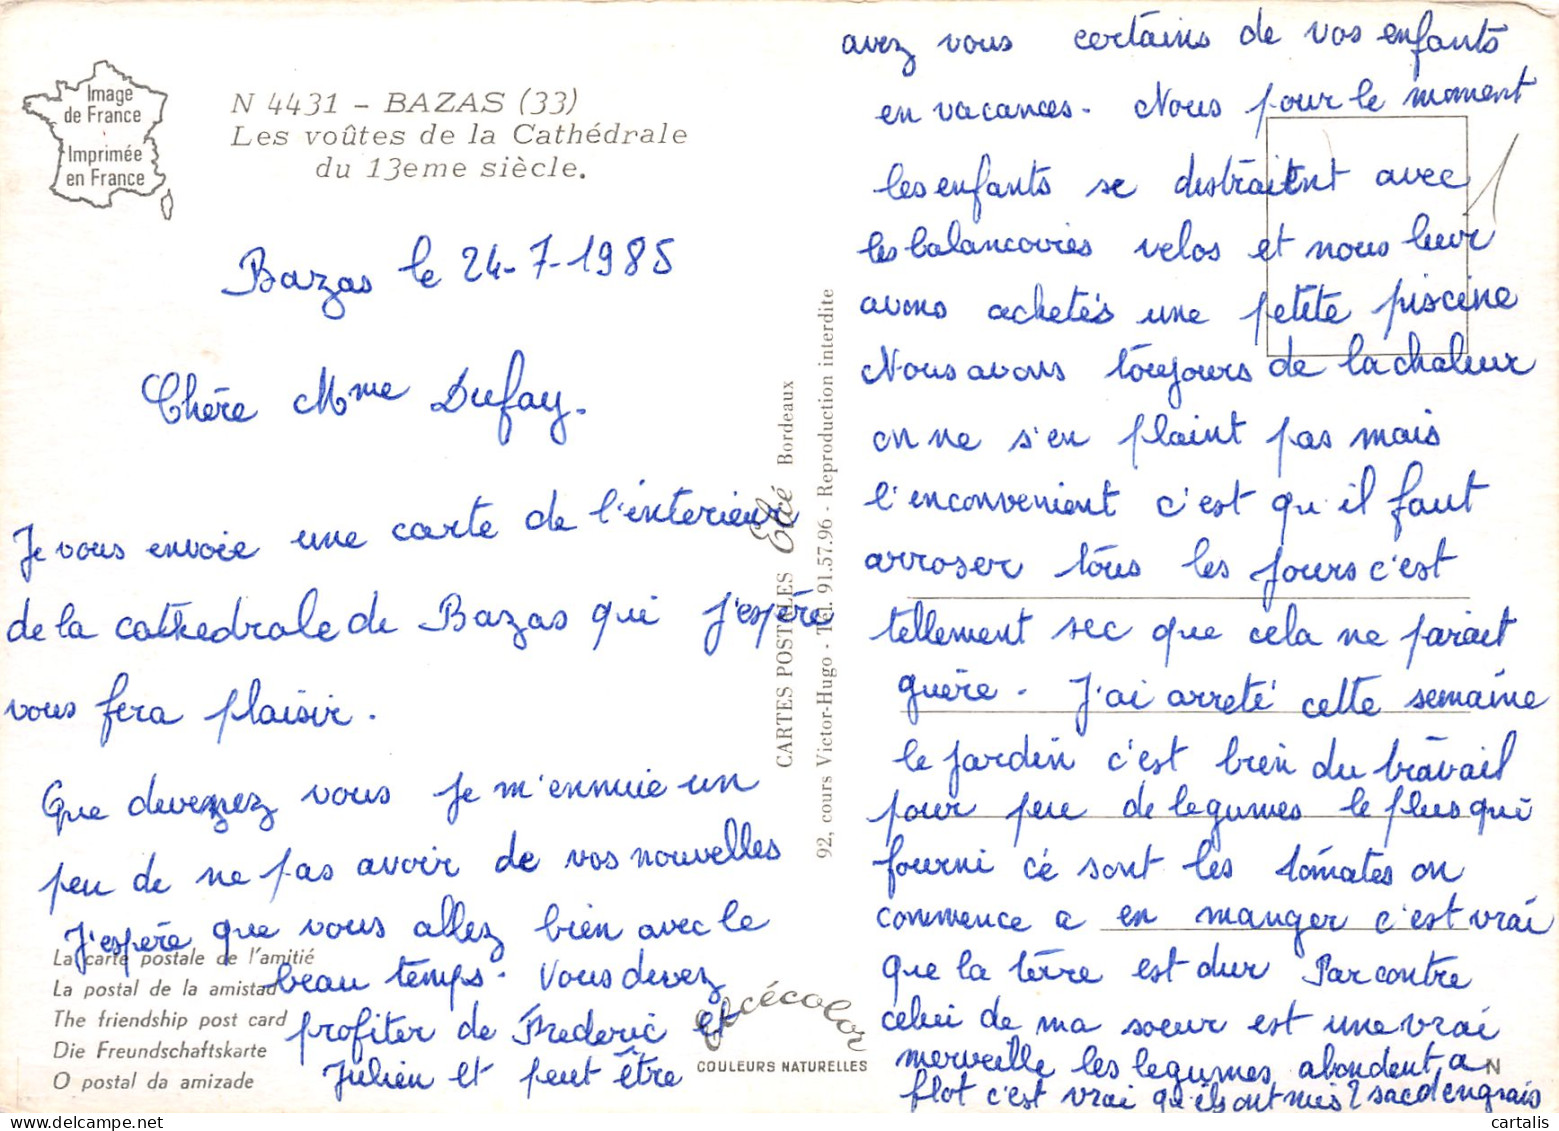 Image
de France
Imprimée
en France
N 4431 - BAZAS (33)
Les voûtes de la Cathédrale
du 13eme siècle.
Bazas le 24-7-1985
Chère Mme Dufay.
Je vous envoie une carte de l'interieur
de la cathedrale de Bazas qui j'espère
vous fera plaisir.
Que devenez vous je m'ennuie un
peu de ne pas avoir de vos nouvelles
J'espère que vous allez bien avec le
beau temps. Vous devez
profiter de Frederic et
Julien et peut être
La carte postale de l'amitié
La postal de la amistad
The friendship post card
Die Freundschaftskarte
O postal da amizade
CARTES POSTALES Elcé Bordeaux
92, cours Victor-Hugo - Tél. 91.57.96 - Reproduction interdite
Elcécolor
COULEURS NATURELLES
avez vous certains de vos enfants
en vacances. Nous pour le moment
les enfants se distraient avec
les balancoires velos et nous leur
avons achetés une petite piscine
Nous avons toujours de la chaleur
on ne s'en plaint pas mais
l'enconvenient c'est qu'il faut
arroser tous les jours c'est
tellement sec que cela ne parait
guère. J'ai arreté cette semaine
le jardin c'est bien du travail
pour peu de legumes le plus qui
fourni cé sont les tomates on
commence a en manger c'est vrai
que la terre est dur Par contre
celui de ma soeur est une vrai
merveille les legumes abondent a
flot c'est vrai qu'ils ont mis 2 sac d'engrais
N
cartalis